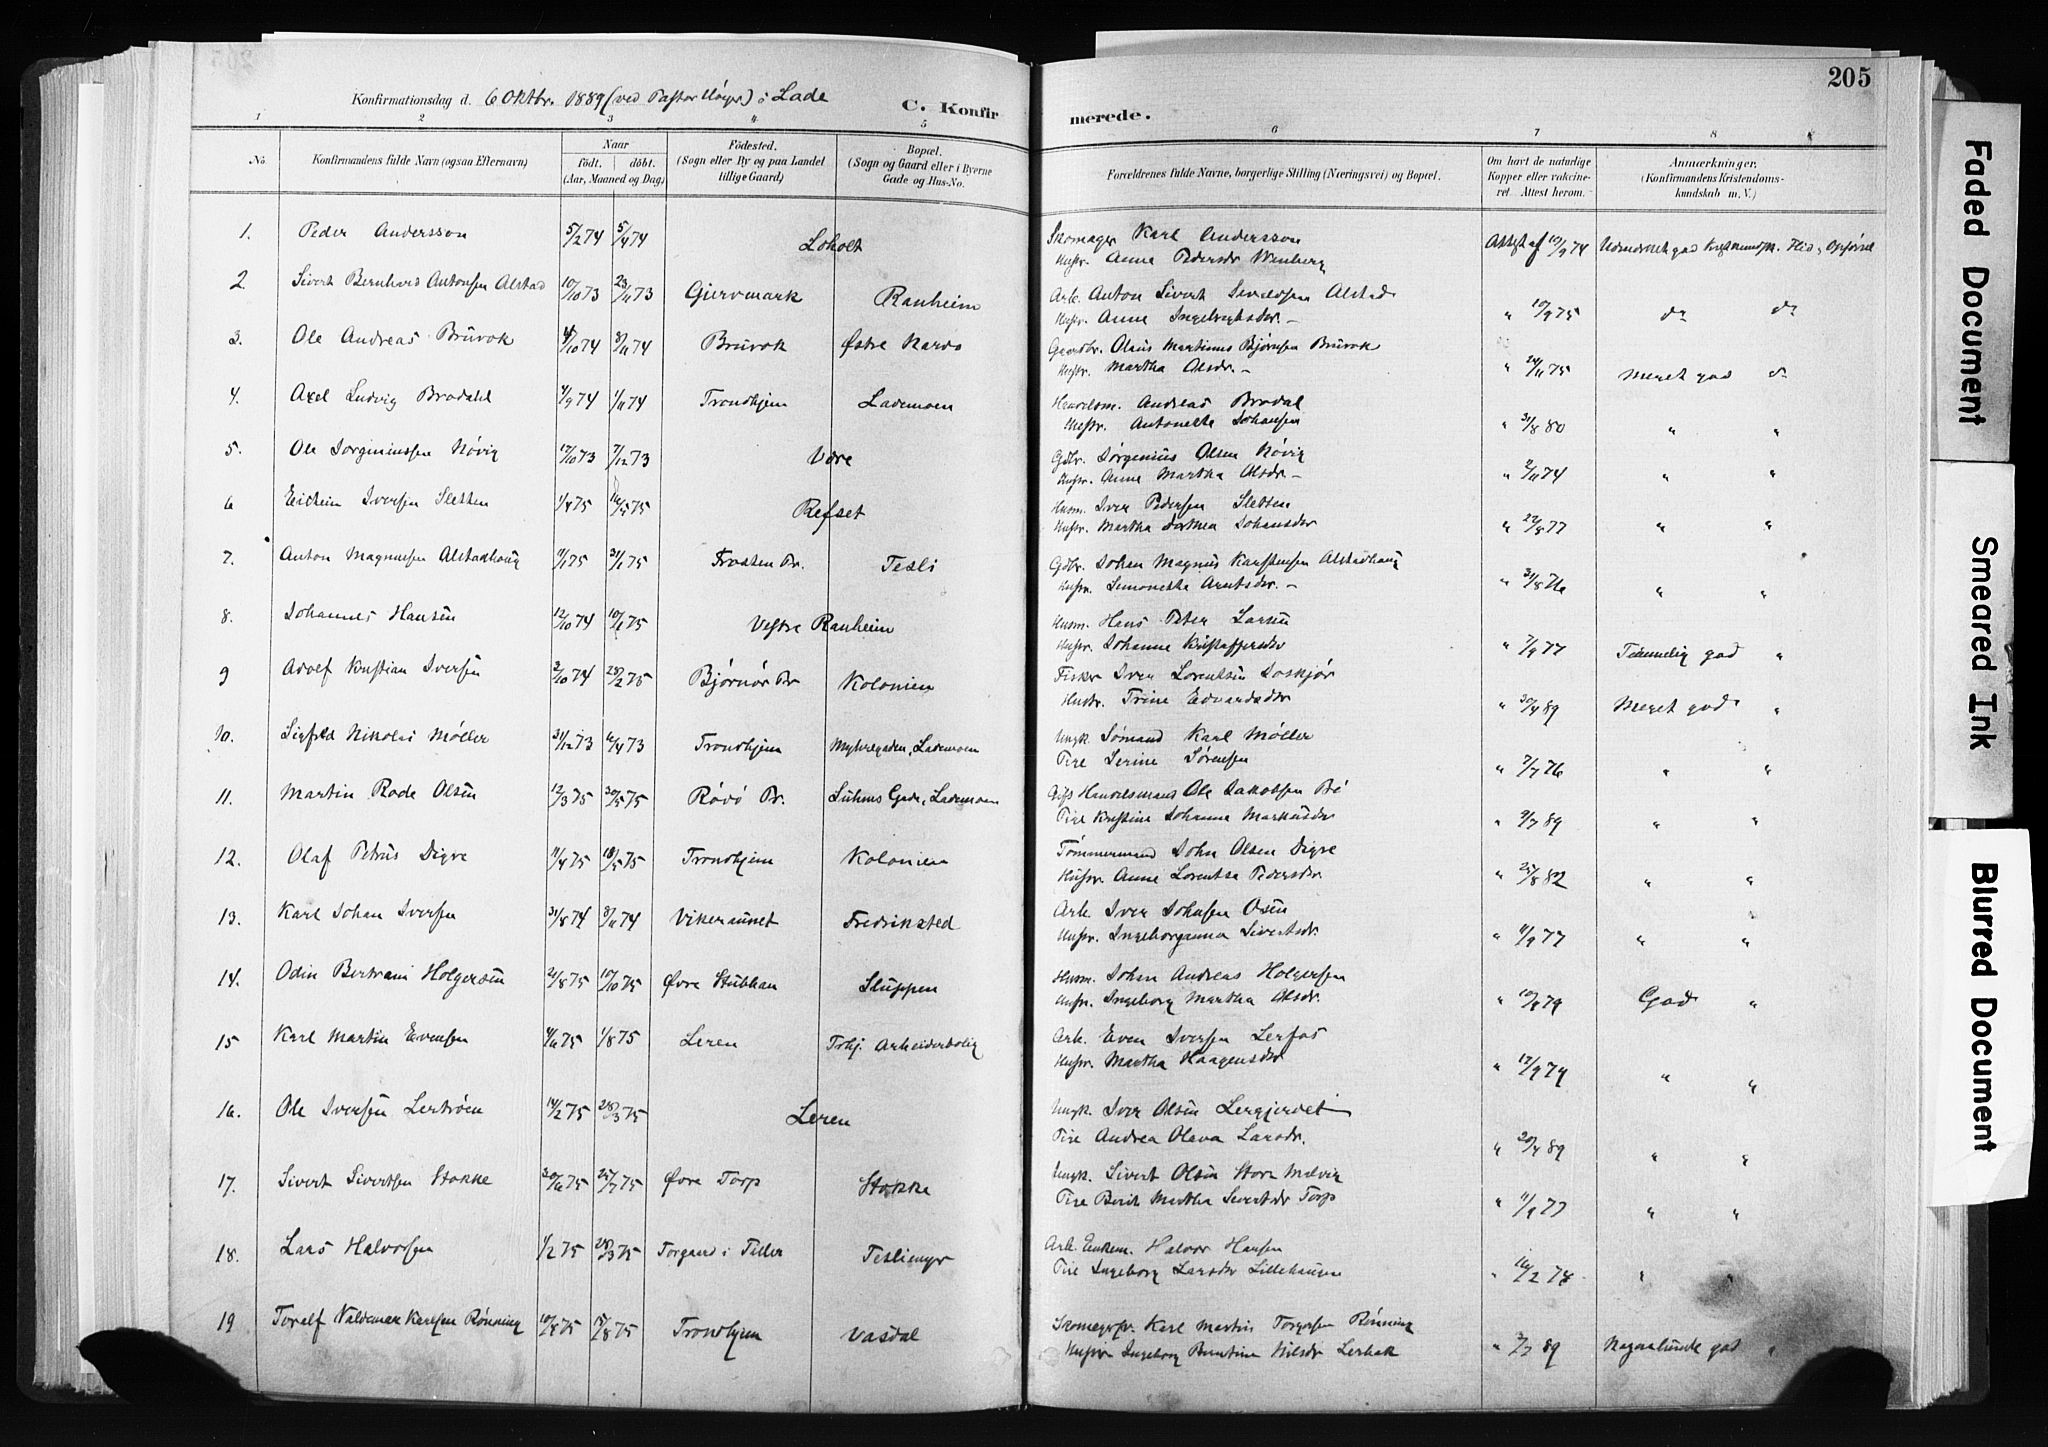 205
Konfirmationsdag d. 6 Oktbr. 1889 (ved Pastor Høyer) i Lade
C. Konfirmerede.
1 2 3 4 5 6 7 8
No
Konfirmandens fulde Navn (ogsaa Efternavn)
Naar
født. døbt.
(Aar, Maaned og Dag)
Fødested.
(Sogn eller By og paa Landet
tillige Gaard)
Bopæl.
(Sogn og Gaard eller i Byerne
Gade og Hus-No.
Forældrenes fulde Navne, borgerlige Stilling (Næringsvei) og Bopæl.
Om havt de naturlige
Kopper eller vakcine-
ret. Attest herom.
Anmærkninger.
(Konfirmandens Kristendoms-
kundskab m. V.)
1. Peder Andersson 5/2 74 5/4 74 Loholt Skomager Karl Andersson
Hustr. Anna Pedersdr Wenberg Attest af 10/9 74 Udmærket god Flid, Opførsel
2. Sivert Bernhard Antonsen Alstad 10/10 73 23/11 73 Gjervmark Ranheim Arb. Anton Sivert Alstad
Hustr. Anne Ingebrigtsdr. — " 10/9 75 do do
3. Ole Andreas Bruvok 4/10 74 8/11 74 Bruvok Østre Karvo Gaardbr. Olaus Martinus Bjørnsen Bruvok
Hustr. Martha Olsdr. — " 24/11 75 Meget god do
4. Axel Ludvig Brodahl 4/9 74 1/11 74 Trondhjem Lademoen Handelsm. Andreas Brodal
Hustr. Antonette Johansen " 31/8 80 " "
5. Ole Jørginiussen Høvig 17/10 73 7/12 73 Være Gdbr. Jørgenius Olsen Høvig
Hustr. Anne Martha Olsdr. — " 2/11 74 " "
6 Iversen Sletten 1/4 75 16/5 75 Refset Husm. Iver Pedersen Sletten
Hustr. Martha Dorthea Johansdr " 22/8 77 " "
7. Anton Magnussen Alstadhaug 11/1 75 31/1 75 Frosten Pr. Tesli Gdbr. Johan Magnus Karstensen Alstadhaug
Hustr. Simonette Arntsdr. — " 31/8 76 " "
8. Johannes Hansen 12/10 74 10/1 75 Vestre Ranheim Husm. Hans Peter Larsen
Hustr. Johanna Kristoffersdr " 7/9 77 Temmelig god "
9 Adolf Kristian Iversen 2/10 74 28/2 75 Bjørnør Pr Kolonien Fisker Iver Lorentsen Joskjør
Hustr. Trine Edvardsdr " 30/4 89 Meget god "
10. Sigfred Nikolai Møller 31/12 73 6/4 73 Trondhjem Myhregaden, Lademoen Ungk. Sømand Karl Møller
Pige Serine Sørensen " 7/7 76 " "
11. Martin Rode Olsen 12/3 75 30/5 75 Rødø Pr. Suhms Gade, Lademoen Gift Handelsmand Ole Jakobsen
Pige Kristine Johanna Markusdr " 9/7 89 " "
12. Olaf Petrus Digre 11/4 75 18/5 75 Trondhjem Kolonien Tømmermand John Olsen Digre
Hustr. Anne Lorentsa Pedersdr " 25/8 82 " "
13. Karl Johan Iversen 31/8 74 8/11 74 Vikeraunet Fredriksted Arb. Iver Johnsen Osen
Hustr. Ingeborganna Sivertsdr. " 11/9 77 " "
14. Odin Bertram Holgersen 21/8 75 10/10 75 Øvre Stubban Sluppen Husm. Johan Andreas Holgersen
Hustr. Ingeborg Martha Olsdr. " 10/9 79 God "
15 Karl Martin Evensen 4/6 75 1/8 75 Leren Trhj. Arbeiderbolig Arb. Even Iversen Lerfos
Hustr. Martha Haagensdr " 17/9 79 " "
16. Ole Iversen Lertrøen 14/2 75 28/3 75 Leren Ungk. Iver Olsen Lergjerdet
Pige Andrea Olava Larsdr. " 20/4 89 " "
17. Sivert Sivertsen Stokke 20/6 75 25/7 75 Øvre Torp Stokke Ungk. Sivert Olsen Store Malvig
Pige Berit Martha Sivertsdr Torp " 11/9 77 " "
18. Lars Halvorsen 1/2 75 28/3 75 Torgaard i Tiller Teslimyr Arb. Enkem. Halvor Hansen
Pige Ingeborg Larsdr Lillehaugen " 16/2 78 " "
19 Toralf Valdemar Karlsen Rønning 10/4 75 15/8 75 Trondhjem Vasdal Karl Martin Torgersen Rønning
Hustr Ingeborg Berntine Nilsdr Lerbak " 3/7 89 Nogenlunde god "
Faded Document
Smeared Ink
Blurred Document